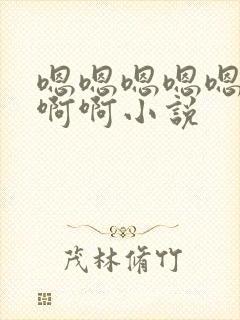 嗯嗯嗯嗯嗯
啊啊小説
茂林脩竹